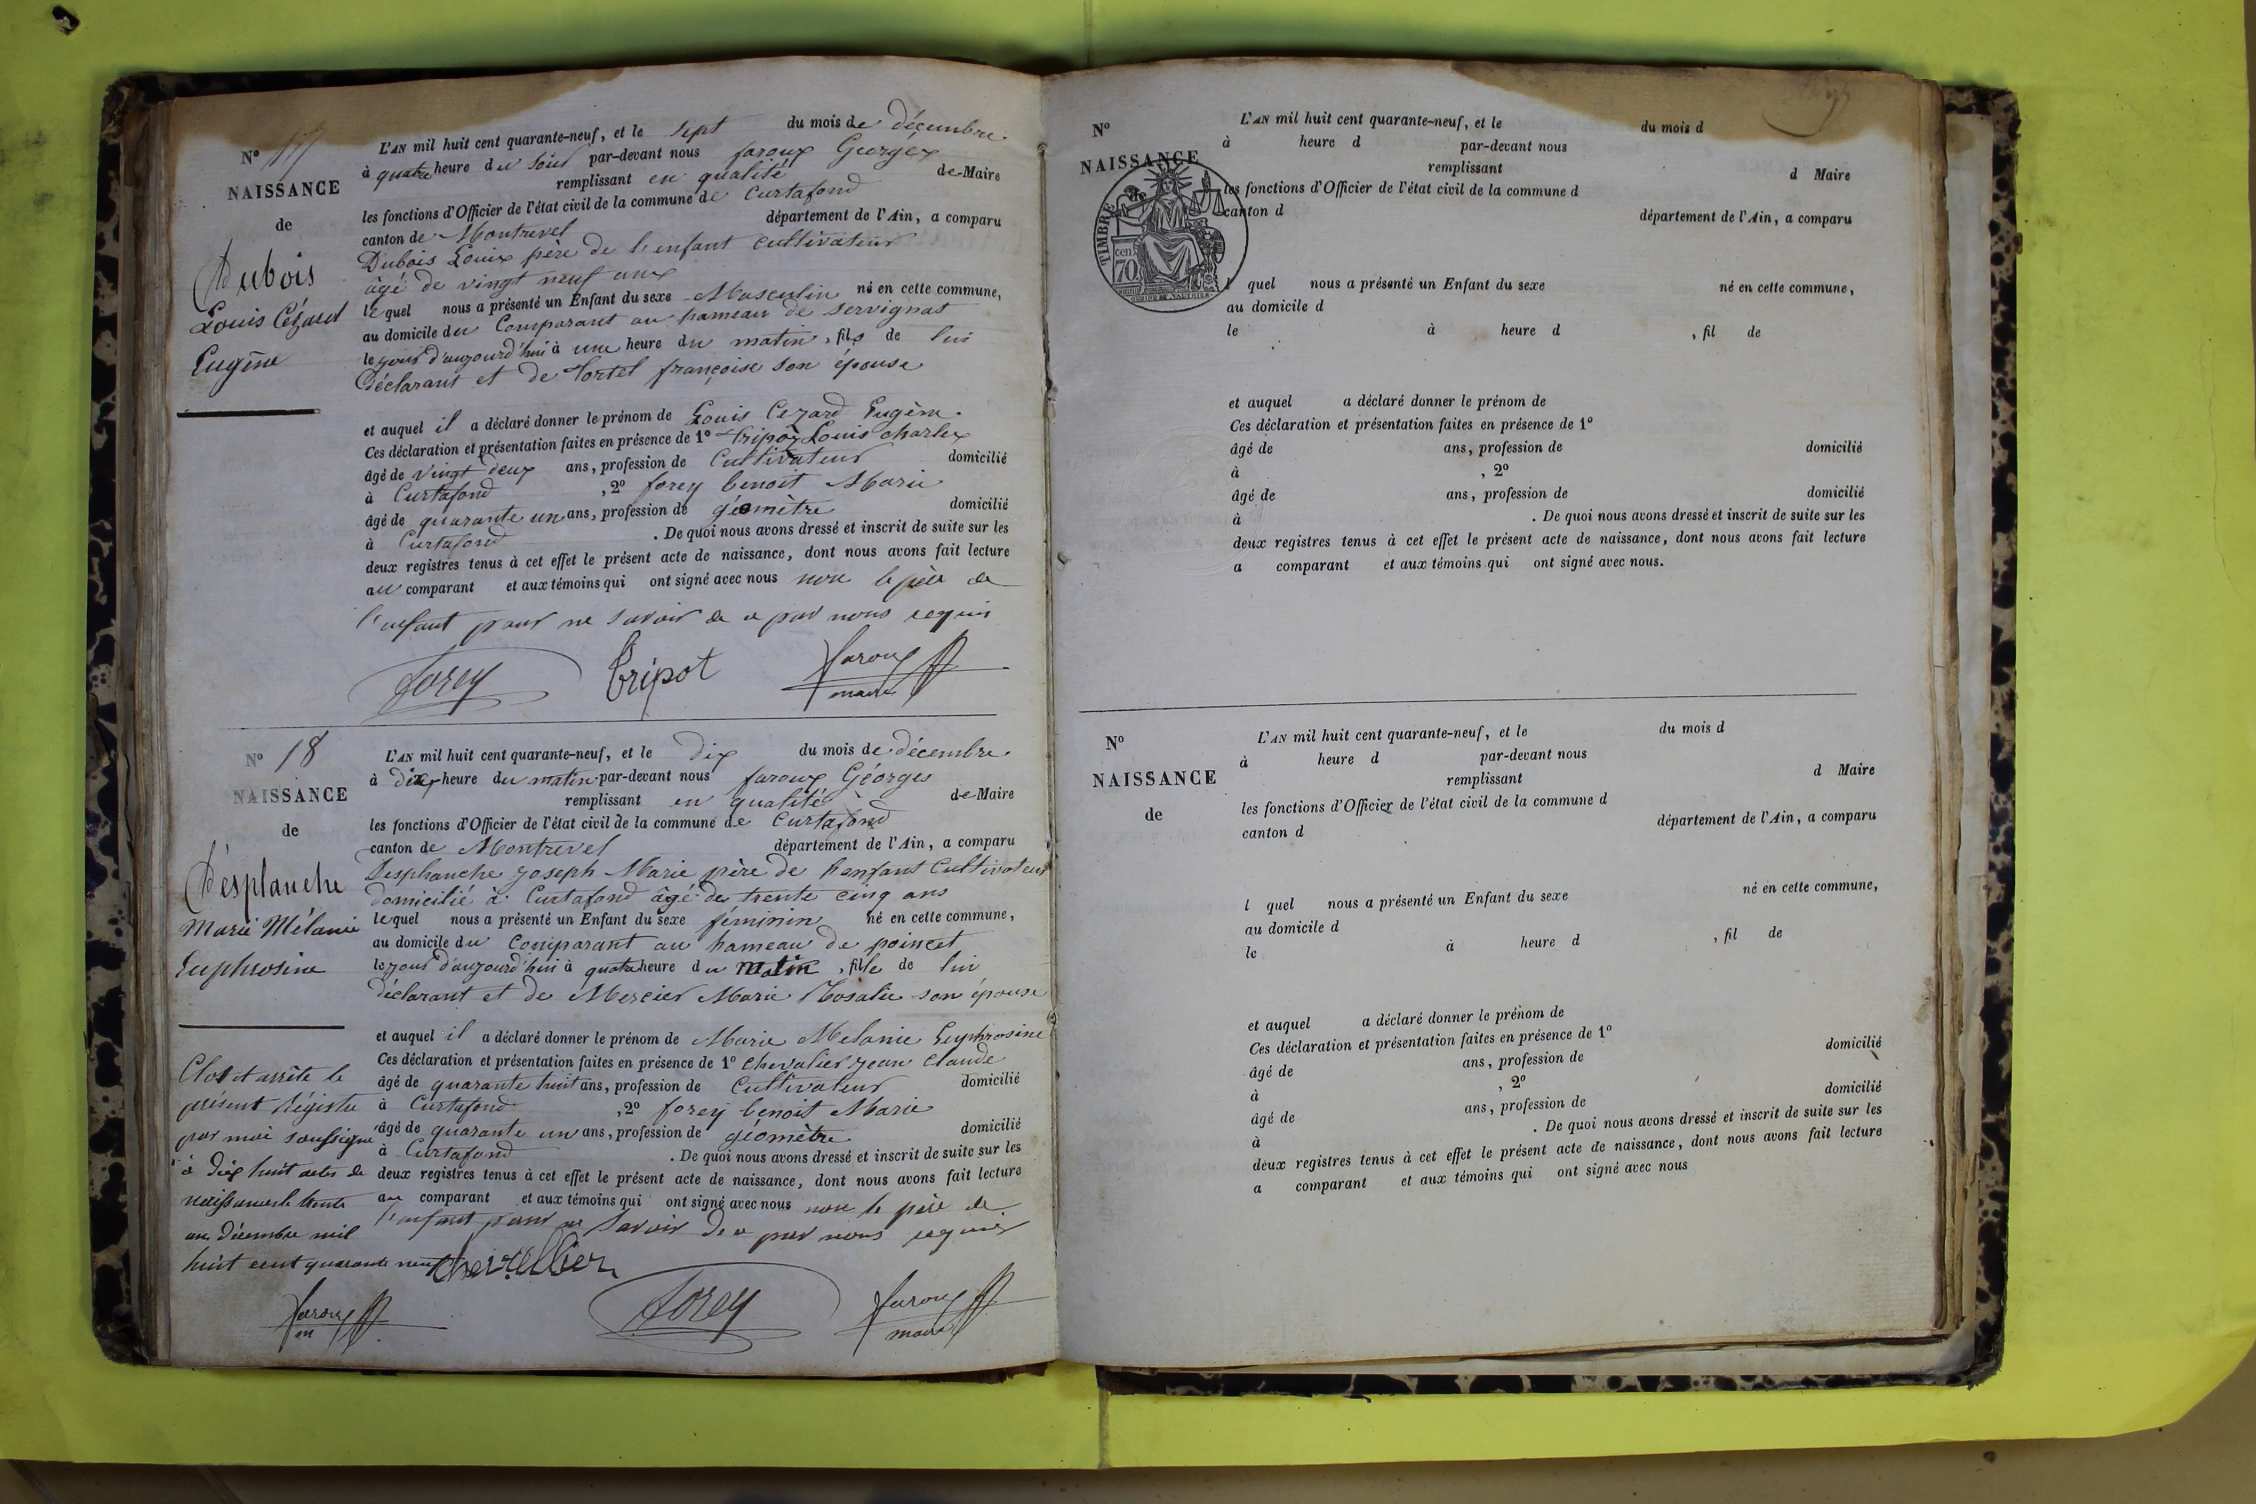 N° 17
NAISSANCE
de
Dubois
Louis Cézard
Eugène
L'AN mil huit cent quarante-neuf, et le sept du mois de décembre
à quatre heure du soir par-devant nous faroux Georges
remplissant en qualité de Maire
les fonctions d'Officier de l'état civil de la commune de Curtafond
canton de Montrevel département de l'Ain, a comparu
Dubois Louis père de l'enfant cultivateur
âgé de vingt neuf ans
lequel nous a présenté un Enfant du sexe Masculin né en cette commune,
au domicile du Comparant au hameau de servignat
le jour d'aujourd'hui à une heure du matin, fils de lui
déclarant et de tortel françoise son épouse
et auquel il a déclaré donner le prénom de Louis Cezard Eugène.
Ces déclaration et présentation faites en présence de 1° tripoz Louis charles
âgé de vingt deux ans, profession de Cultivateur domicilié
à Curtafond, 2° forey benoit Marie
âgé de quarante un ans, profession de géomètre domicilié
à Curtafond. De quoi nous avons dressé et inscrit de suite sur les
deux registres tenus à cet effet le présent acte de naissance, dont nous avons fait lecture
au comparant et aux témoins qui ont signé avec nous non le père de
l'enfant pour ne savoir de ce par nous requis
forey tripot faroux
maire
N° 18
NAISSANCE
de
Désplanche
Marie Mélanie
Euphrosine
L'AN mil huit cent quarante-neuf, et le dix du mois de décembre
à dix heure du matin par-devant nous faroux Géorges
remplissant en qualité de Maire
les fonctions d'Officier de l'état civil de la commune de Curtafond
canton de Montrevel département de l'Ain, a comparu
Desplanche joseph Marie père de l'enfant Cultivateur
domicilié à Curtafond âgé de trente cinq ans
lequel nous a présenté un Enfant du sexe féminin né en cette commune,
au domicile du Comparant au hameau de poincet
le jour d'aujourd'hui à quatre heure du matin, fille de lui
déclarant et de Mercier Marie Rosalie son épouse
et auquel il a déclaré donner le prénom de Marie Melanie Euphrosine
Ces déclaration et présentation faites en présence de 1° Chevalier jean Claude
âgé de quarante huit ans, profession de Cultivateur domicilié
à Curtafond, 2° forey benoit Marie
âgé de quarante un ans, profession de géomètre domicilié
à Curtafond. De quoi nous avons dressé et inscrit de suite sur les
deux registres tenus à cet effet le présent acte de naissance, dont nous avons fait lecture
au comparant et aux témoins qui ont signé avec nous non le père de
l'enfant pour ne savoir de ce par nous requis
Clos et arrête le
présent Régistre
par moi soussigné
à dix huit actes de
naissances le trente
un décembre mil
huit cent quarante neuf
chevallier
faroux forey faroux
m maire
N°
NAISSANCE
de
TIMBRE
70 cen
L'AN mil huit cent quarante-neuf, et le du mois d
à heure d par-devant nous
remplissant d Maire
les fonctions d'Officier de l'état civil de la commune d
canton d département de l'Ain, a comparu
l quel nous a présenté un Enfant du sexe né en cette commune,
au domicile d
le à heure d , fil de
et auquel a déclaré donner le prénom de
Ces déclaration et présentation faites en présence de 1°
âgé de ans, profession de domicilié
à , 2°
âgé de ans, profession de domicilié
à . De quoi nous avons dressé et inscrit de suite sur les
deux registres tenus à cet effet le présent acte de naissance, dont nous avons fait lecture
a comparant et aux témoins qui ont signé avec nous.
N°
NAISSANCE
de
L'AN mil huit cent quarante-neuf, et le du mois d
à heure d par-devant nous
remplissant d Maire
les fonctions d'Officier de l'état civil de la commune d
canton d département de l'Ain, a comparu
l quel nous a présenté un Enfant du sexe né en cette commune,
au domicile d
le à heure d , fil de
et auquel a déclaré donner le prénom de
Ces déclaration et présentation faites en présence de 1°
âgé de ans, profession de domicilié
à , 2°
âgé de ans, profession de domicilié
à . De quoi nous avons dressé et inscrit de suite sur les
deux registres tenus à cet effet le présent acte de naissance, dont nous avons fait lecture
a comparant et aux témoins qui ont signé avec nous